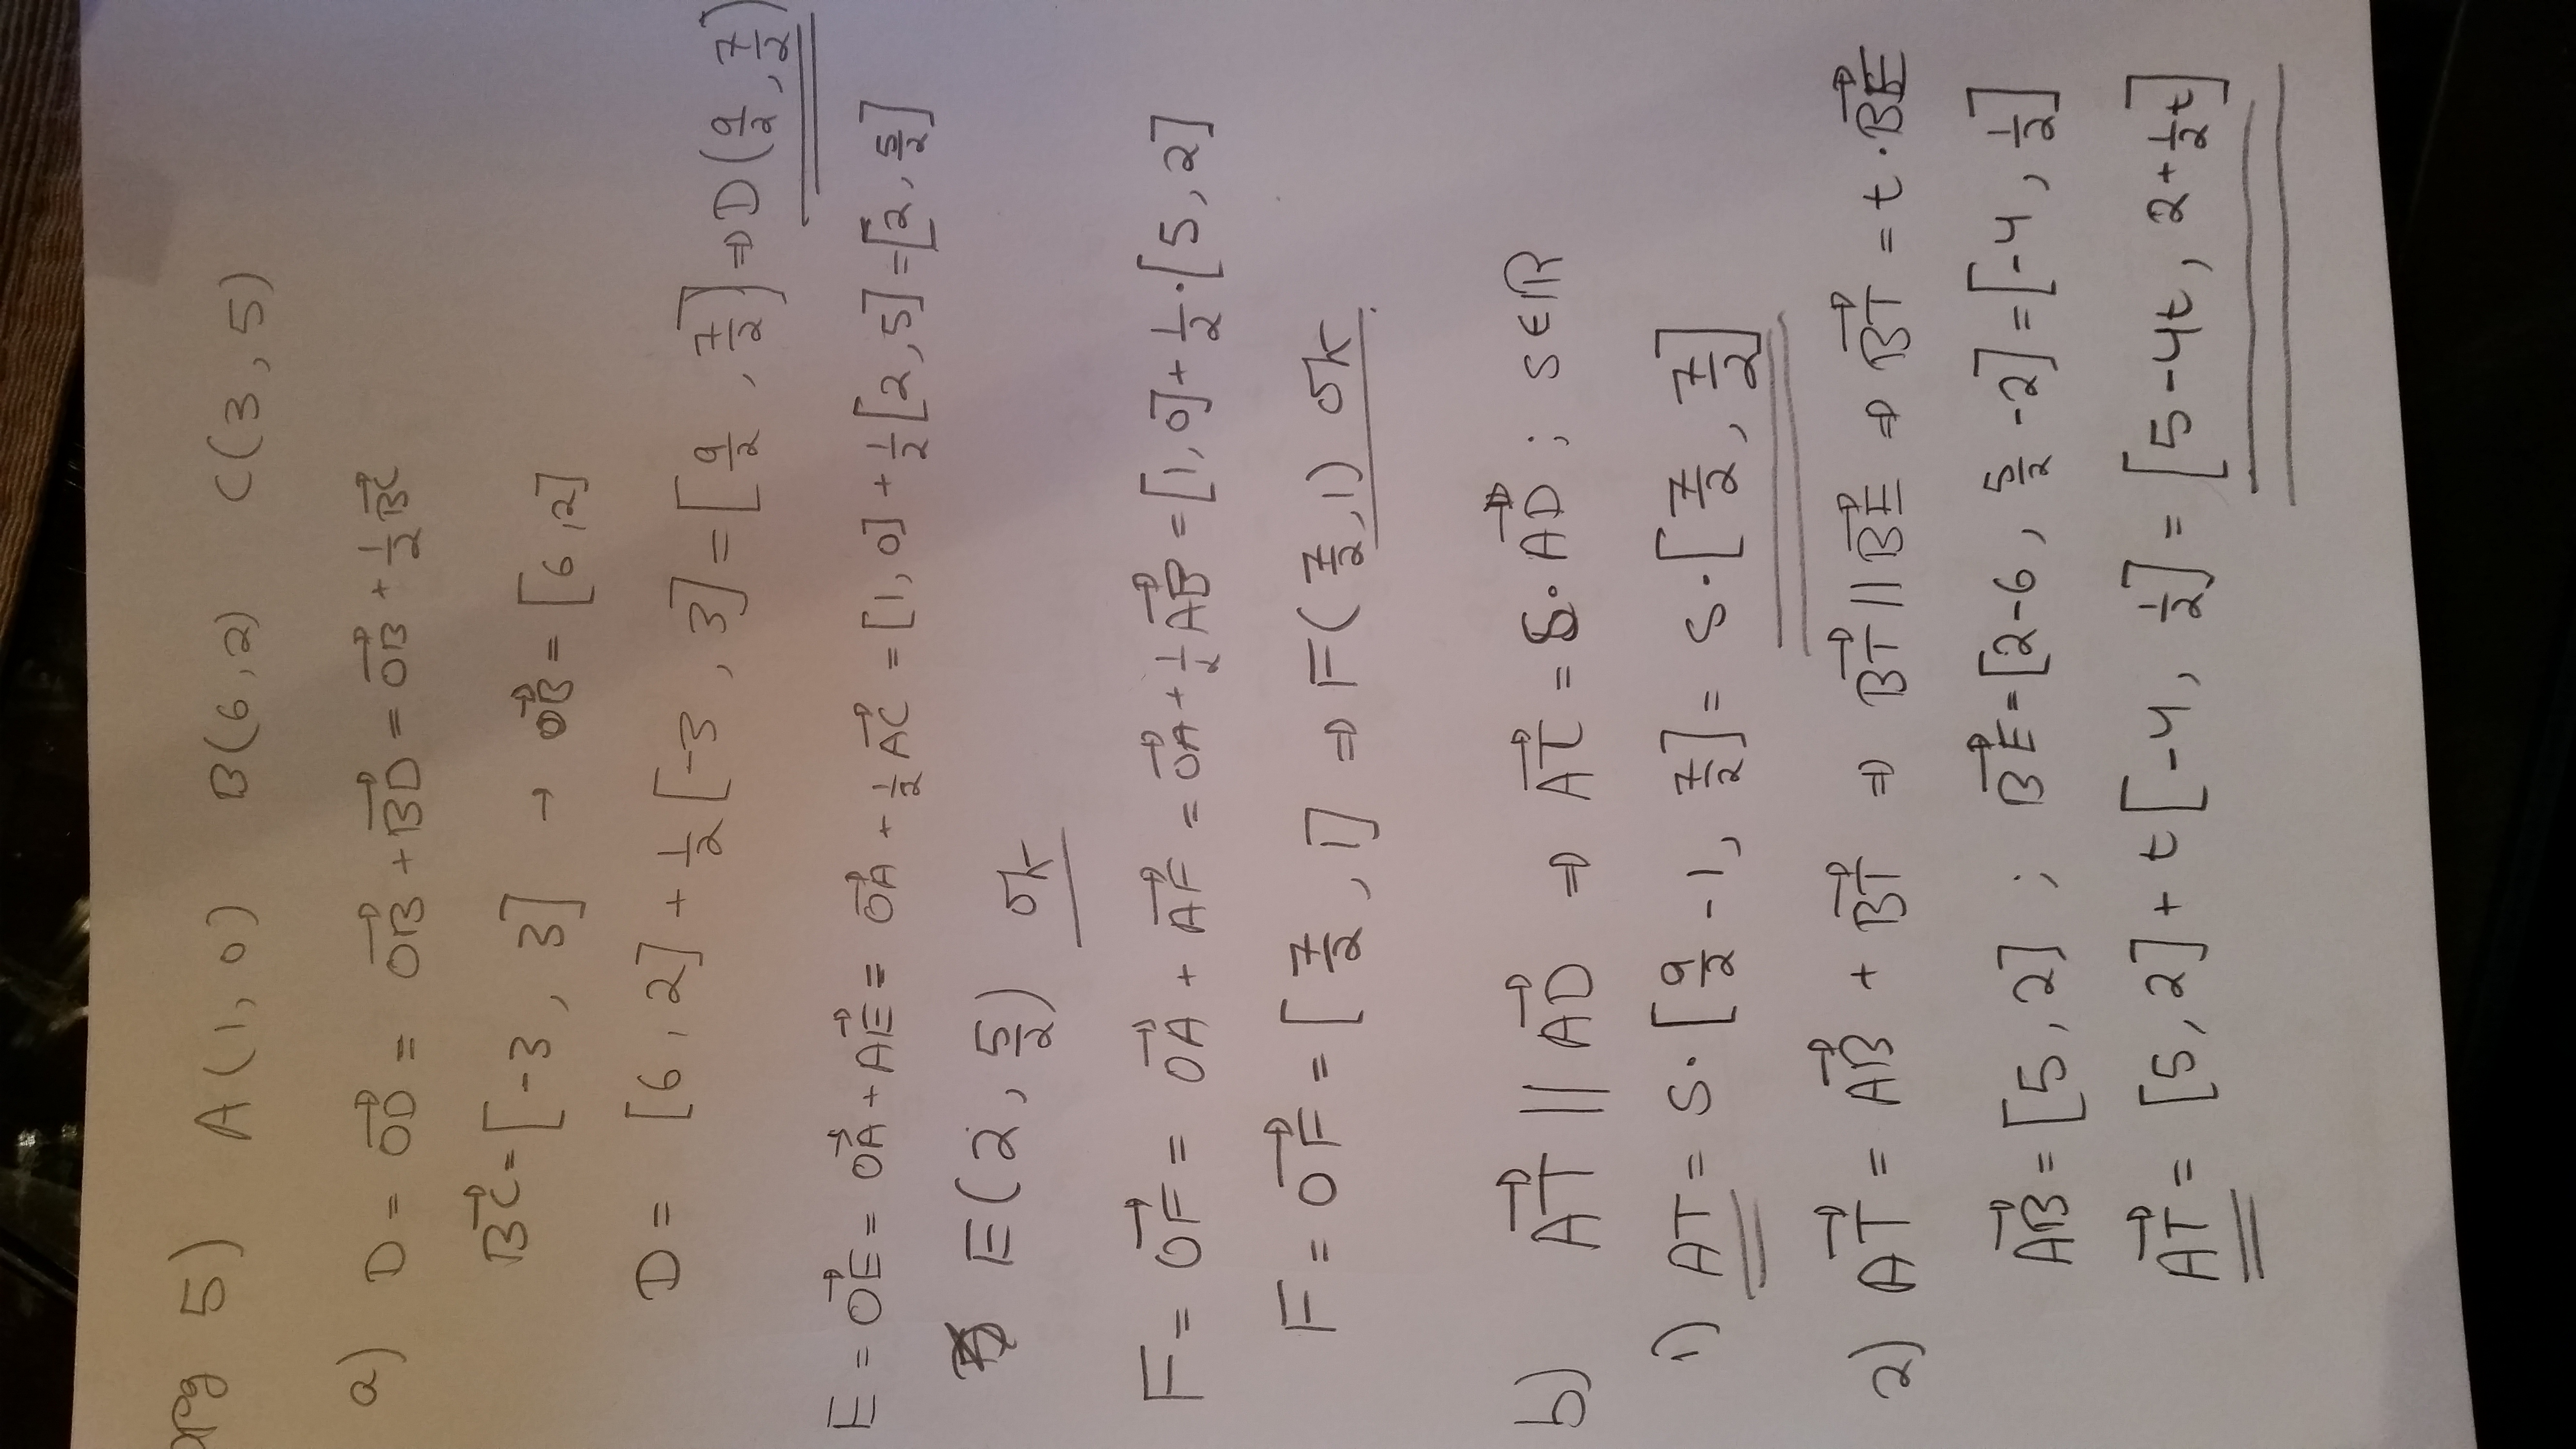 opg 5) A(1,0) B(6,2) C(3,5)
a) D = \vec{OD} = \vec{OB} + \vec{BD} = \vec{OB} + \frac{1}{2}\vec{BC}
\vec{BC} = [-3, 3] → \vec{OB} = [6,2]
D = [6, 2] + \frac{1}{2}[-3, 3] = [\frac{9}{2}, \frac{7}{2}] ⇒ D(\frac{9}{2}, \frac{7}{2})
E = \vec{OE} = \vec{OA} + \vec{AE} = \vec{OA} + \frac{1}{2}\vec{AC} = [1,0] + \frac{1}{2}[2,5] = [2, \frac{5}{2}]
E(2, \frac{5}{2}) ok
F = \vec{OF} = \vec{OA} + \vec{AF} = \vec{OA} + \frac{1}{2}\vec{AB} = [1,0] + \frac{1}{2}·[5,2]
F = \vec{OF} = [\frac{7}{2}, 1] ⇒ F(\frac{7}{2}, 1) ok
b) \vec{AT} || \vec{AD} ⇒ \vec{AT} = s·\vec{AD}; s∈ℝ
1) AT = s·[\frac{9}{2} - 1, \frac{7}{2}] = s·[\frac{7}{2}, \frac{7}{2}]
2) \vec{AT} = \vec{AB} + \vec{BT} ⇒ \vec{BT} || \vec{BE} ⇒ \vec{BT} = t·\vec{BE}
\vec{AB} = [5, 2]; \vec{BE} = [2-6, \frac{5}{2} - 2] = [-4, \frac{1}{2}]
\vec{AT} = [5, 2] + t[-4, \frac{1}{2}] = [5-4t, 2+\frac{1}{2}t]